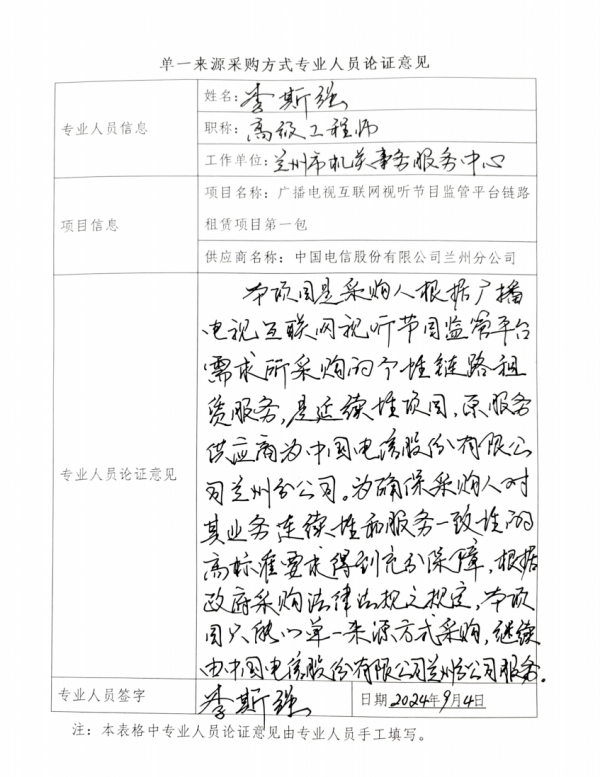 单一来源采购方式专业人员论证意见
专业人员信息
姓名：李斯强
职称：高级工程师
工作单位：兰州市机关事务服务中心
项目信息
项目名称：广播电视互联网视听节目监管平台链路
租赁项目第一包
供应商名称：中国电信股份有限公司兰州分公司
专业人员论证意见
本项目是采购人根据广播
电视互联网视听节目监管平台
需求所采购的个性链路租
赁服务，是延续性项目，原服务
供应商为中国电信股份有限公
司兰州分公司。为确保采购人对
其业务连续性和服务一致性的
高标准要求得到充分保障，根据
政府采购法律法规之规定，本项
目只能以单一来源方式采购，继续
由中国电信股份有限公司兰州分公司服务.
专业人员签字
李斯强
日期 2024年9月4日
注：本表格中专业人员论证意见由专业人员手工填写。